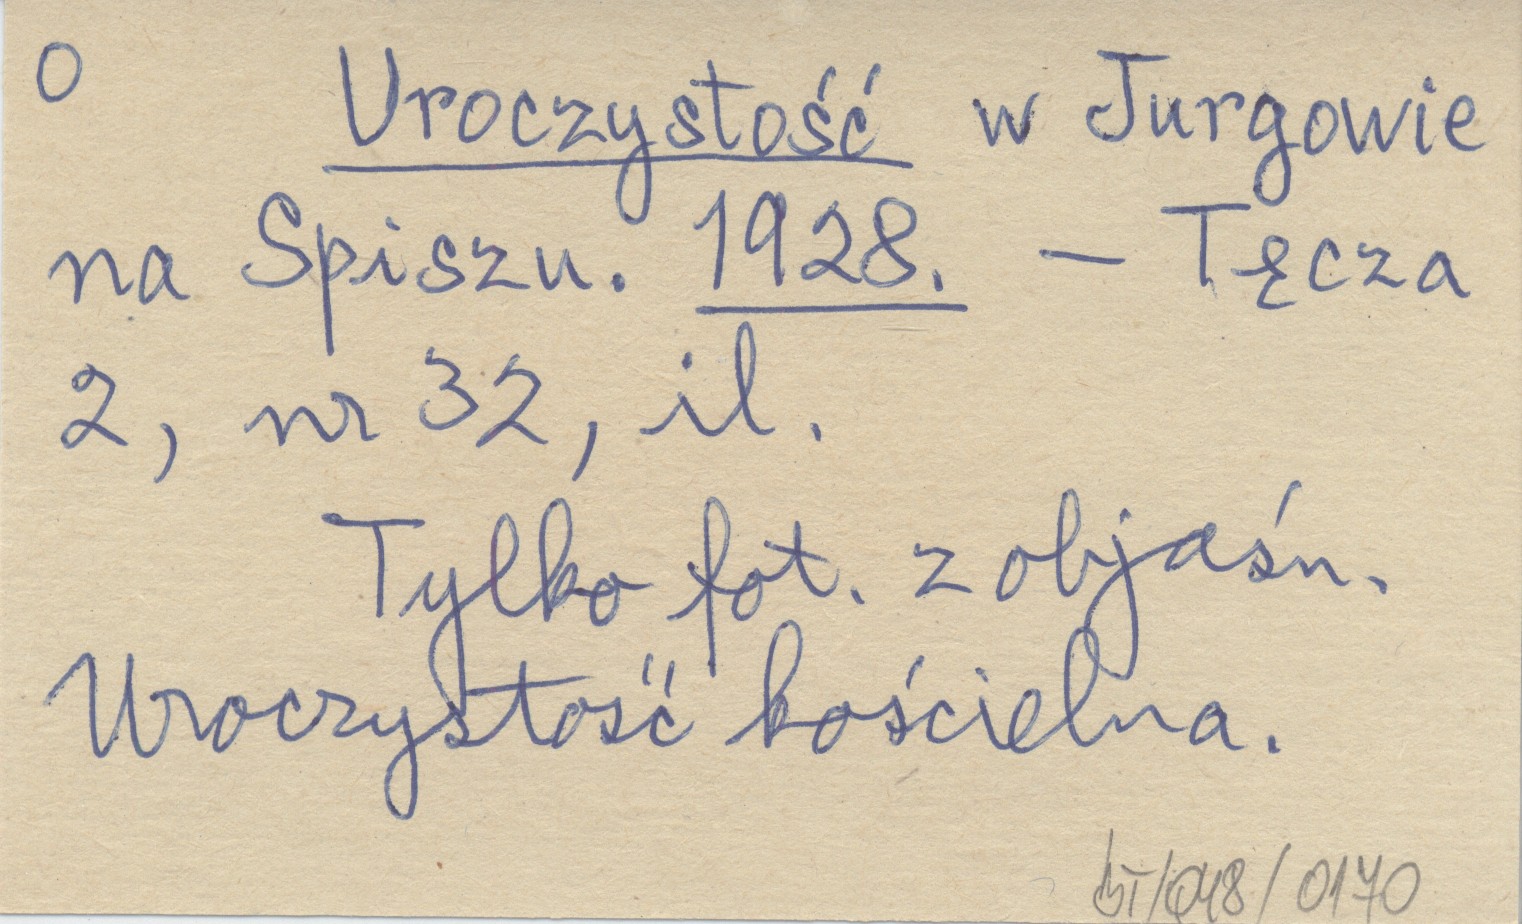 O Uroczystość w Jurgowie
na Spiszu. 1928. – Tęcza
2, nr 32, il.
Tylko fot. z objaśn.
Uroczystość kościelna.
/048/0170